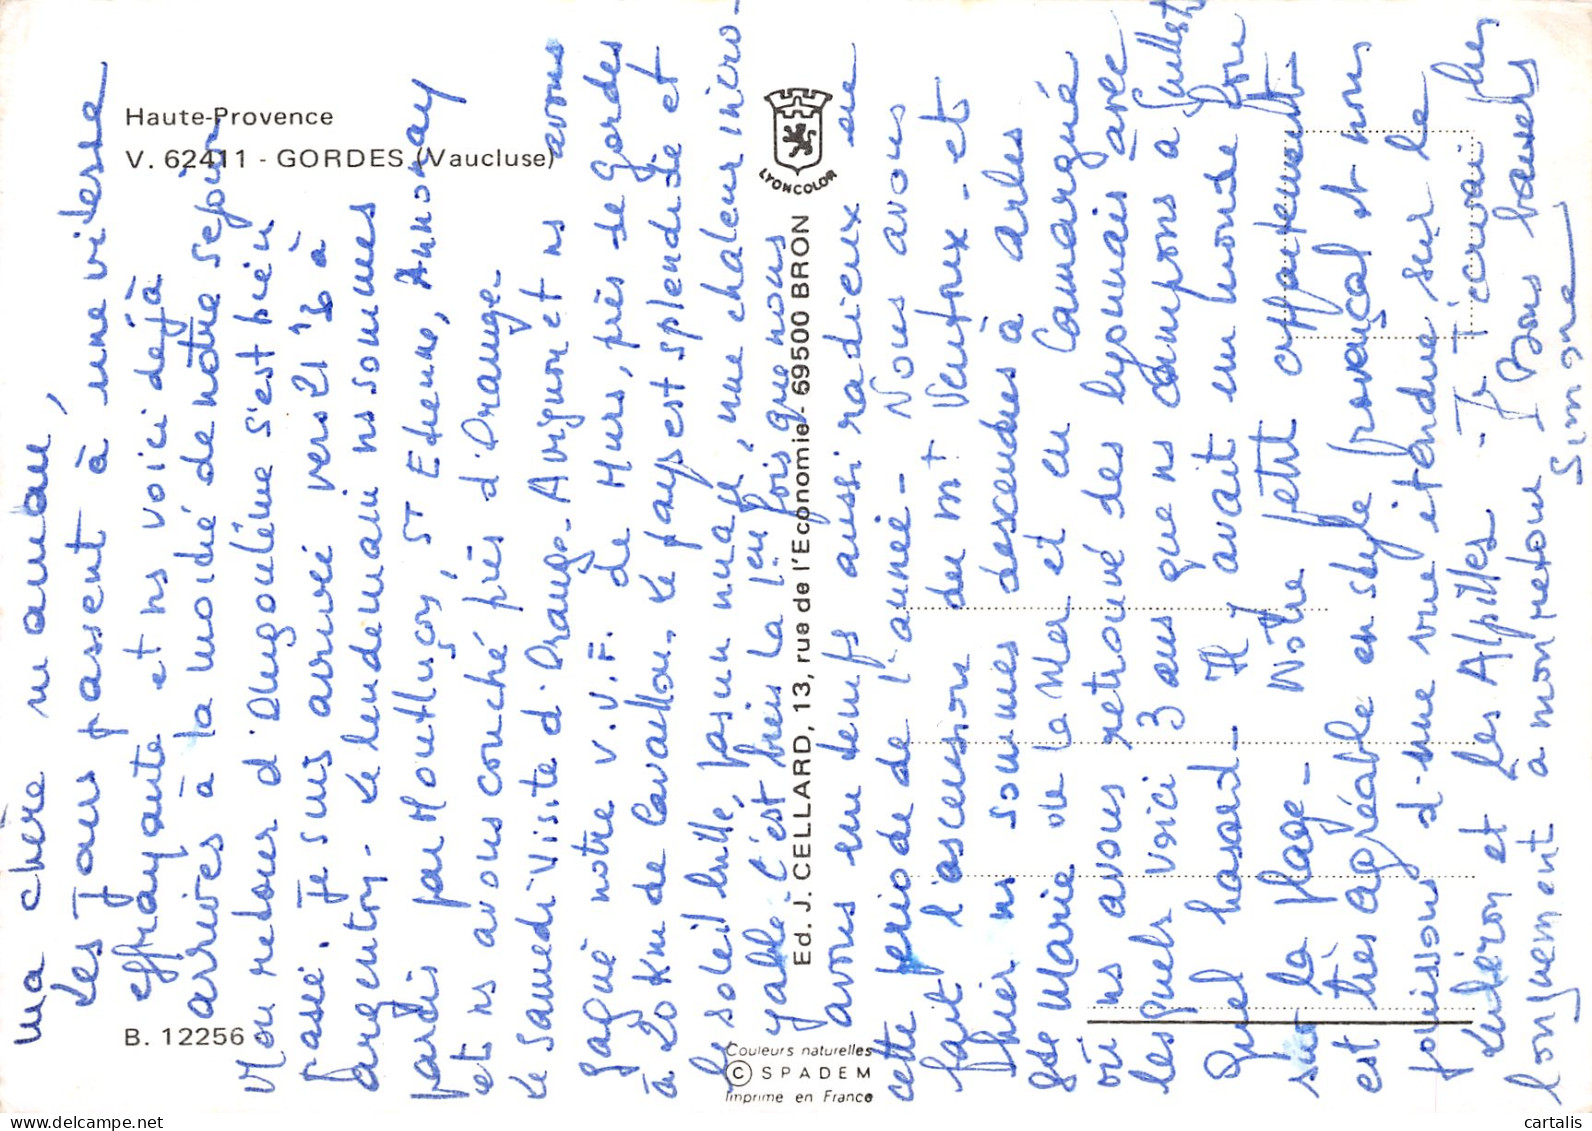 Haute-Provence
V. 62411 - GORDES (Vaucluse)
B. 12256
LYONCOLOR
Ed. J. CELLARD, 13, rue de l'Economie - 69500 BRON
Couleurs naturelles
© SPADEM
Imprimé en France
Ma chère maman,
Les jours passent à une vitesse
effrayante et ns voici déjà
arrivés à la moitié de notre séjour
Mon retour d'Angoulême s'est bien
passé. Je suis arrivé vers 21h30 à
Argenton. Le lendemain ns sommes
partis par Montluçon, St Etienne, Annonay
et ns avons couché près d'Orange.
Le Samedi Visite d'Orange. Avignon et ns avons
gagné notre V.V.F. de Murs, près de Gordes
à 20 Km de Cavaillon. Le pays est splendide et
le soleil brille, pas un nuage, une chaleur incro-
yable. C'est bien la 1ère fois que nous
avons un temps aussi radieux en
cette période de l'année - Nous avons
fait l'ascension du Mt Ventoux - et
hier ns sommes descendus à Arles
Ste Marie de la Mer et en Camargue
où ns avons retrouvé des lyonnais avec
lesquels voici 3 ans que ns campons à Guillestre
Quel hasard - Il y avait un monde fou
sur la plage - Notre petit appartement
est très agréable en style provençal et nous
jouissons d'une vue étendue sur le
Lubéron et les Alpilles - Je t'écrirai plus
longuement à mon retour. Bons baisers
Simone
cartalis